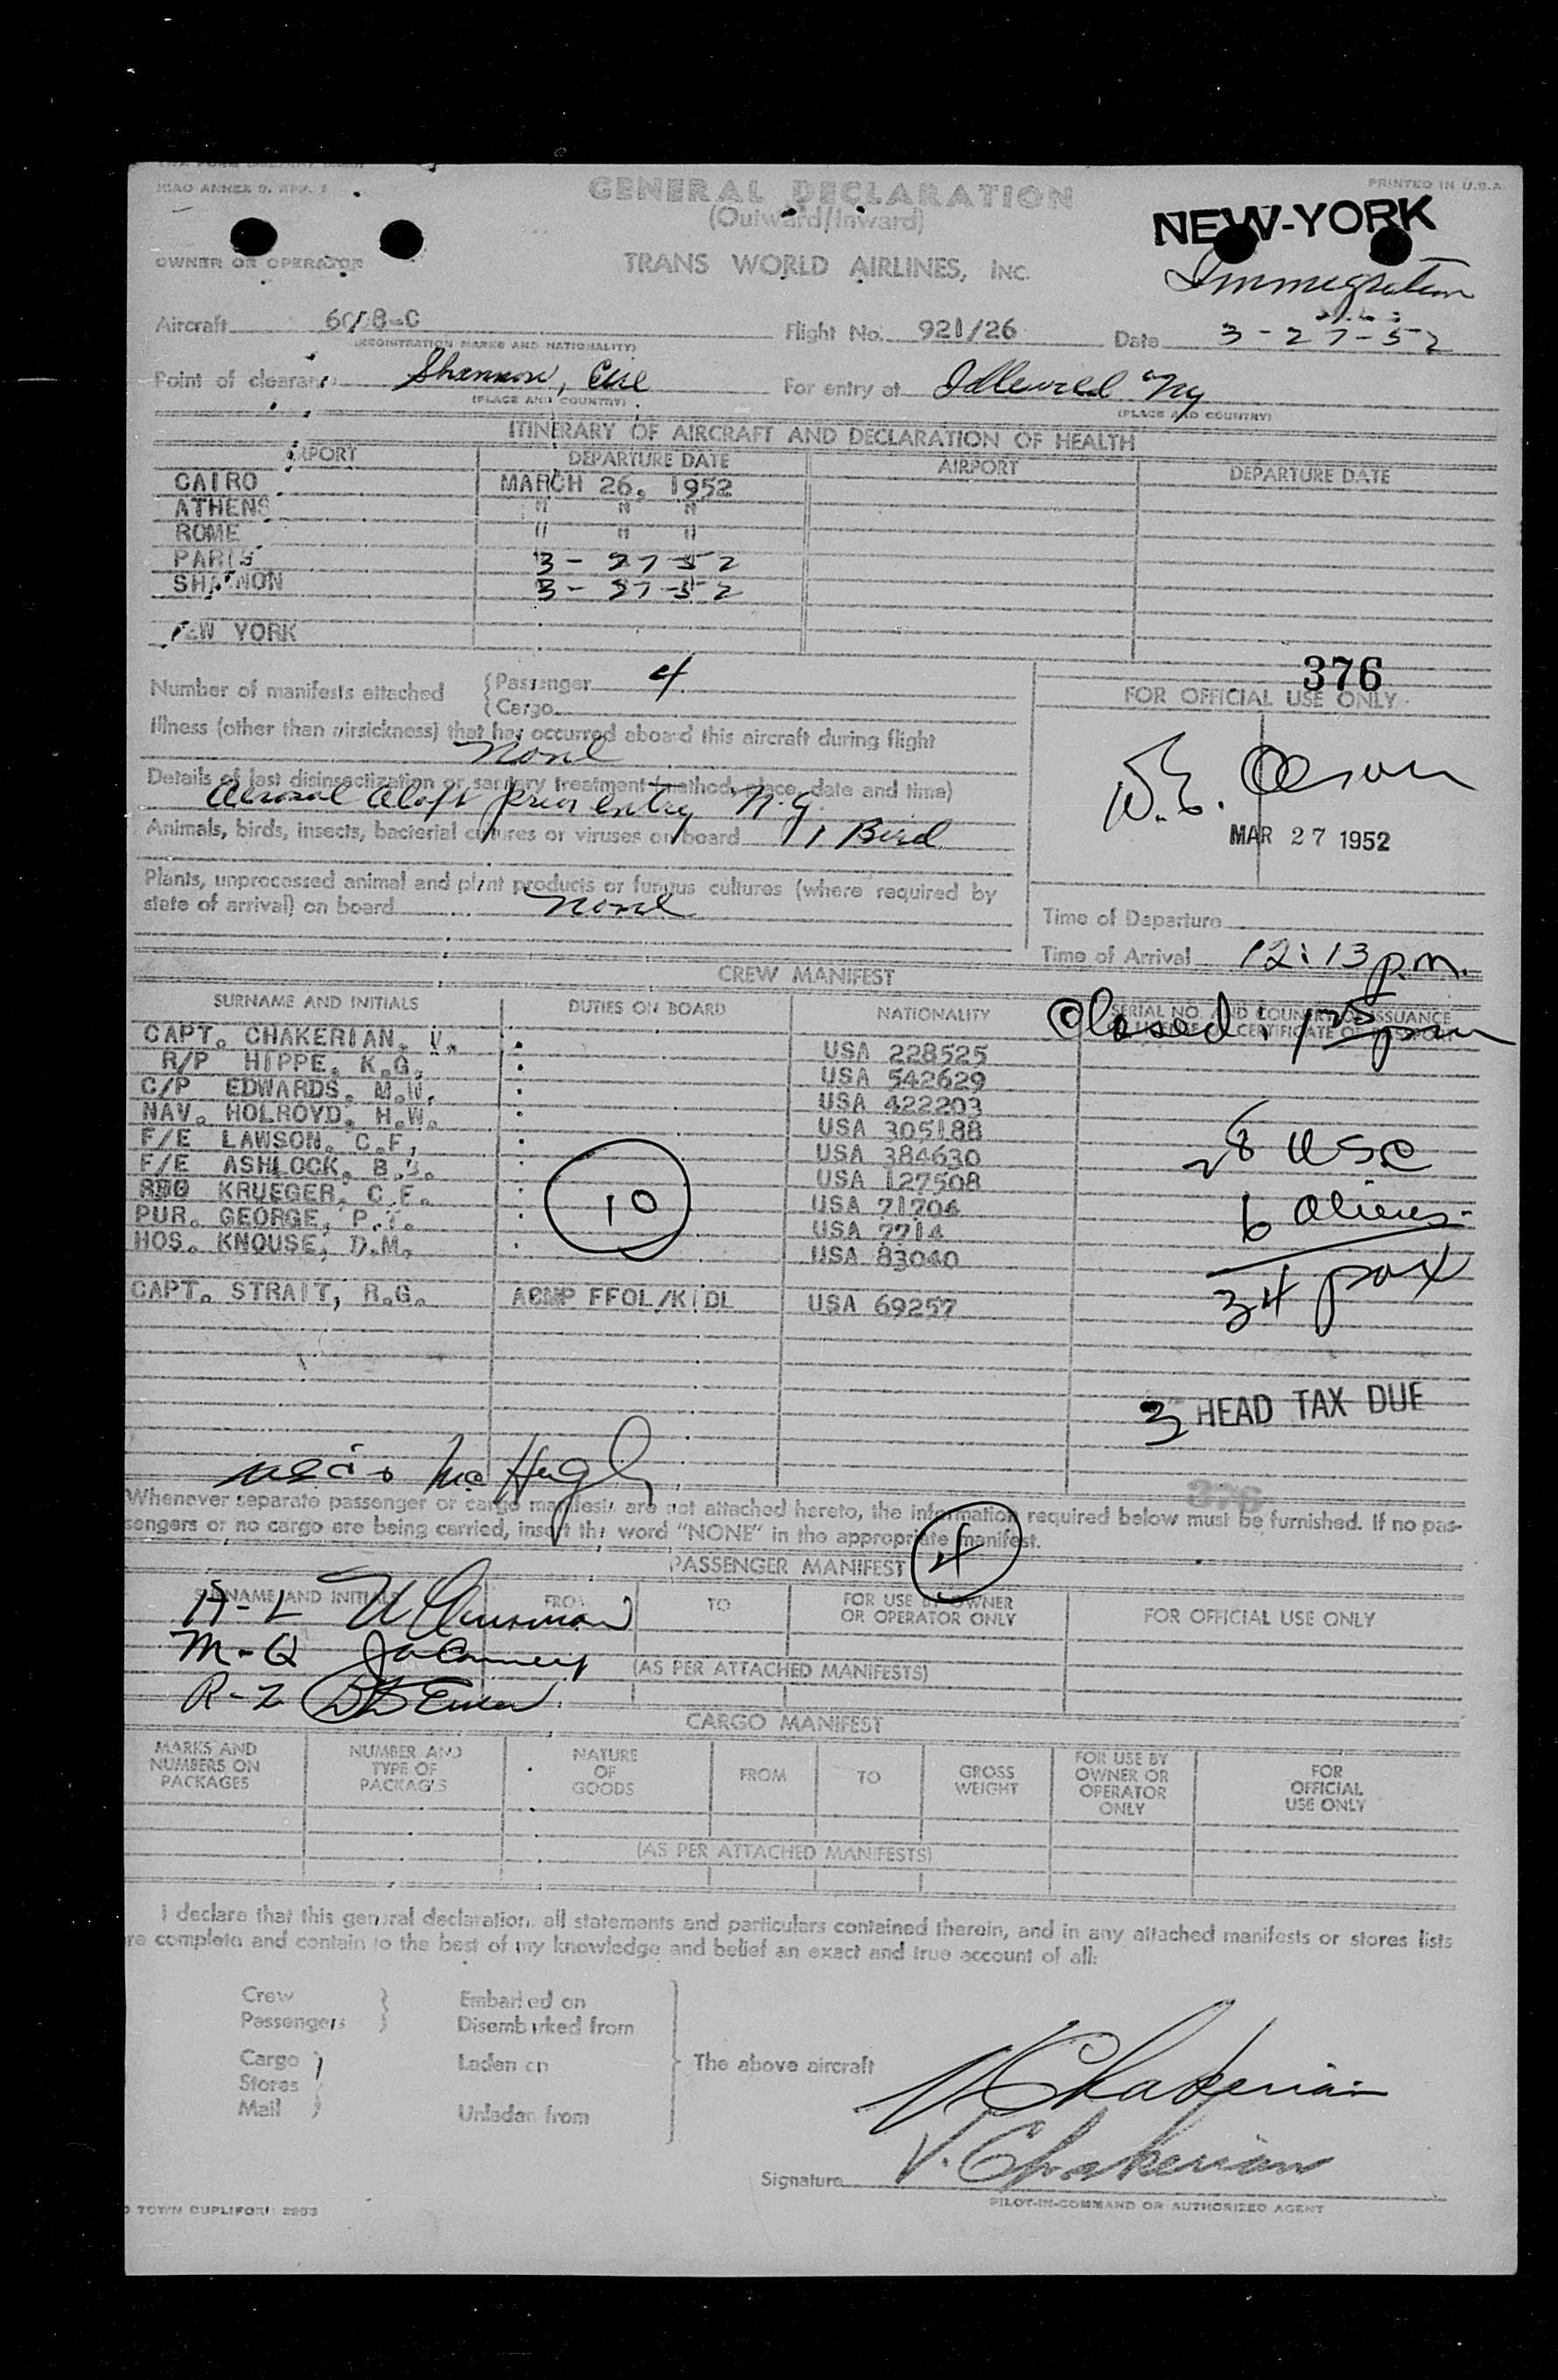 ICAO ANNEX 9, APP. 1
PRINTED IN U.S.A.
GENERAL DECLARATION
(Outward/Inward)
NEW-YORK
OWNER OR OPERATOR
TRANS WORLD AIRLINES, INC.
Immigration
Aircraft 6018-C Flight No. 921/26 Date 3-27-52
(REGISTRATION MARKS AND NATIONALITY)
Point of clearance Shannon, Eire For entry at Idlewild NY
(PLACE AND COUNTRY) (PLACE AND COUNTRY)
ITINERARY OF AIRCRAFT AND DECLARATION OF HEALTH
AIRPORT DEPARTURE DATE AIRPORT DEPARTURE DATE
CAIRO MARCH 26, 1952
ATHENS " " "
ROME " " "
PARIS 3-27-52
SHANNON 3-27-52
NEW YORK
376
Number of manifests attached { Passenger 4
{ Cargo
FOR OFFICIAL USE ONLY
Illness (other than airsickness) that has occurred aboard this aircraft during flight
None
Details of last disinsectization or sanitary treatment (method, place, date and time)
Aerosol Aloft prior entry N.Y.
Animals, birds, insects, bacterial cultures or viruses on board 1 Bird
W.E. Olson
MAR 27 1952
Plants, unprocessed animal and plant products or fungus cultures (where required by
state of arrival) on board None
Time of Departure
Time of Arrival 12:13 p.m.
CREW MANIFEST
SURNAME AND INITIALS DUTIES ON BOARD NATIONALITY SERIAL NO. AND COUNTRY OF ISSUANCE
CERTIFICATE OR
Closed: 125 pm
CAPT. CHAKERIAN, V. USA 228525
R/P HIPPE, K.G. USA 542629
C/P EDWARDS, M.W. USA 422203
NAV. HOLROYD, H.W. USA 305188
F/E LAWSON, C.F. USA 384630
F/E ASHLOCK, B.B. USA 127508
RDO KRUEGER, C.F. USA 71704
PUR. GEORGE, P.T. USA 7714
HOS. KNOUSE, D.M. USA 83040
10
28 USC
6 aliens
34 pax
CAPT. STRAIT, R.G. ACMP FFOL/KIDL USA 69257
3 HEAD TAX DUE
McHugh
376
Whenever separate passenger or cargo manifests are not attached hereto, the information required below must be furnished. If no pas-
sengers or no cargo are being carried, insert the word "NONE" in the appropriate manifest.
PASSENGER MANIFEST 4
SURNAME AND INITIALS FROM TO FOR USE BY OWNER
OR OPERATOR ONLY FOR OFFICIAL USE ONLY
A-L
M-Q
(AS PER ATTACHED MANIFESTS)
R-Z
CARGO MANIFEST
MARKS AND
NUMBERS ON
PACKAGES
NUMBER AND
TYPE OF
PACKAGES
NATURE
OF
GOODS
FROM
TO
GROSS
WEIGHT
FOR USE BY
OWNER OR
OPERATOR
ONLY
FOR
OFFICIAL
USE ONLY
(AS PER ATTACHED MANIFESTS)
I declare that this general declaration, all statements and particulars contained therein, and in any attached manifests or stores lists
re complete and contain to the best of my knowledge and belief an exact and true account of all:
Crew } Embarked on
Passengers } Disembarked from
Cargo } Laden on The above aircraft
Stores
Mail } Unladen from
V Chakerian
Signature V. Chakerian
PILOT-IN-COMMAND OR AUTHORIZED AGENT
TOWN DUPLIFORM 2903